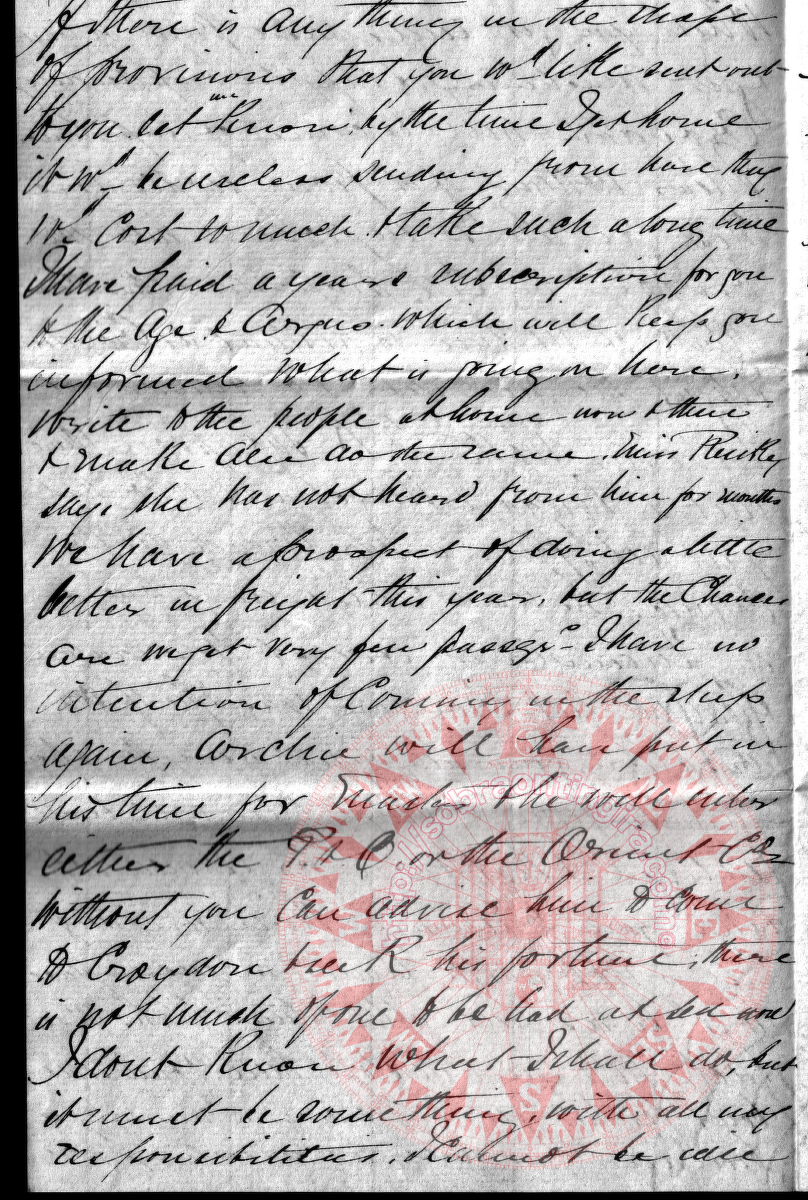 If there is any thing in the shape
of provisions that you wd like sent out
to you let me know, by the time I get home
it wd be useless sending from here they
wd cost to much & take such a long time
I have paid a years subscription for you
to the Age & Argus. Which will keep you
informed what is going on here.
write to the people at home now & then
& make do the same. Miss
says she has not heard from him for months
We have a prospect of doing a little
better in freight this year, but the Chances
are we get very few passgrs - I have no
intention of Coming in the ship
again, Archie will have put in
his time for & he will enter
either the P. & O. or the Orient Co
without you can advise him to come
to Croydon & seek his fortune, there
is not much of one to be had at sea now
I dont know what I shall do, but
it must be something, with all my
responsibilities. I cannot be idle